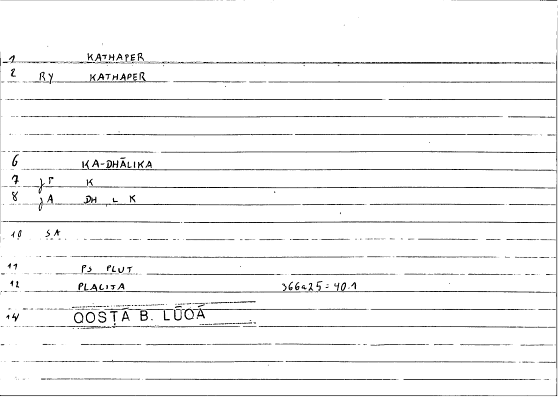 1 KATHAPER
2 RY KATHAPER
6 KA-DHĀLIKA
7 JF K
8 JA DH L K
10 SA
11 PS PLUT
12 PLACITA 366a25=40.1
14 QOSṬĀ B. LŪQĀ